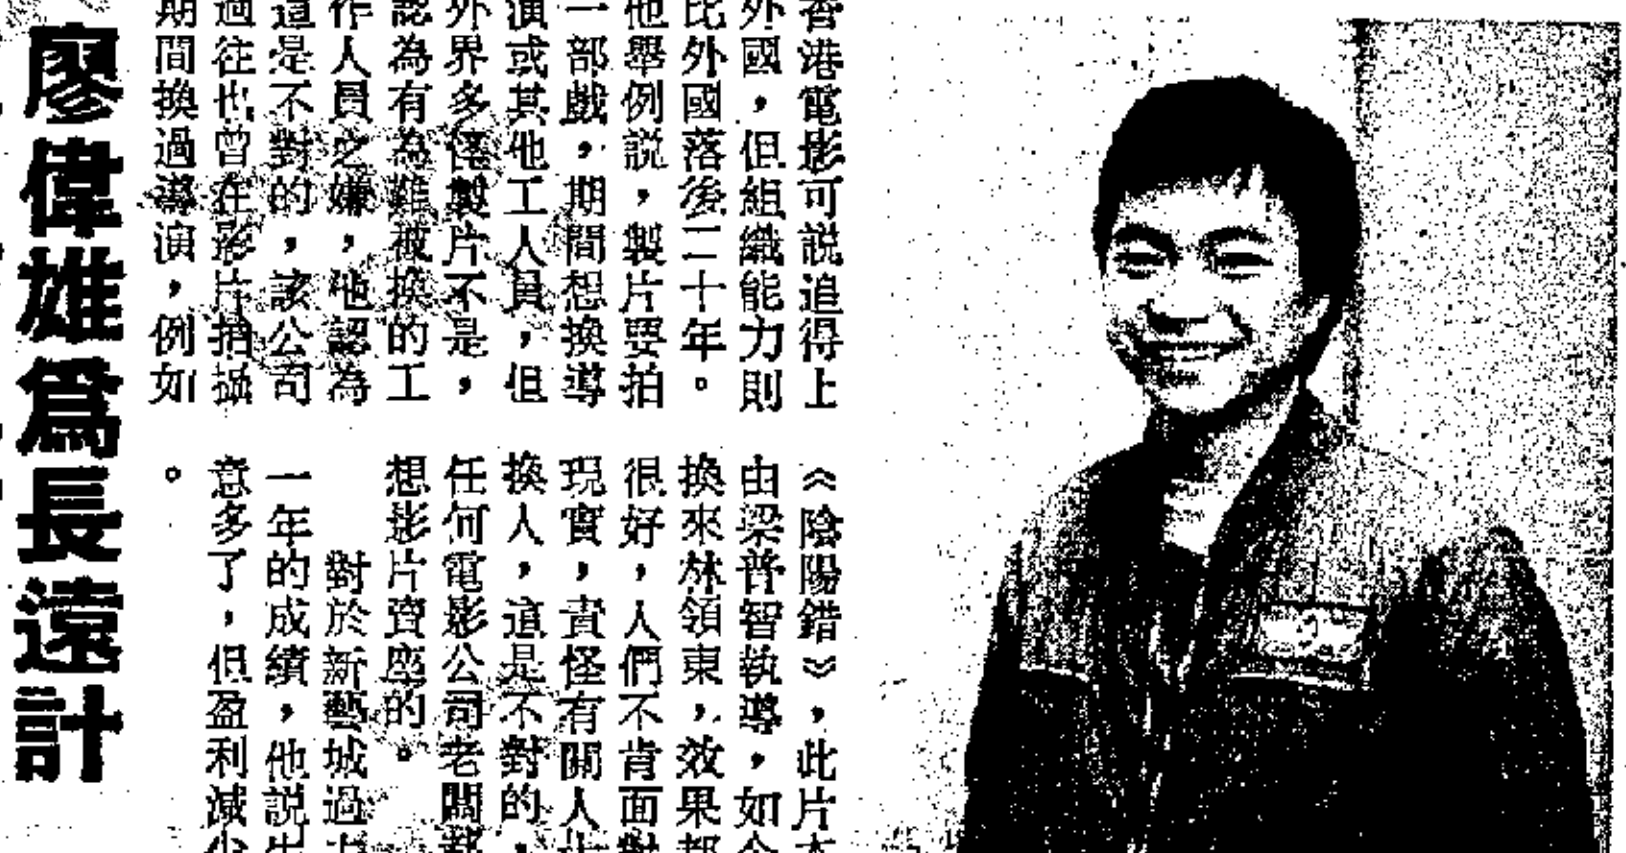 香港電影可説追得上
外國,但組織能力則
比外國落後二十年。
他舉例説,製片要拍
一部戲,期間想換導
演或其他工人員,但
外界多怪製片不是,
認為有為難被換的工
作人員之嫌,他認為
這是不對的,該公司
過往也曾在影片拍攝
期間換過導演,例如
《陰陽錯》,此片本
由梁普智執導,如今
換來林領東,效果都
很好,人們不肯面對
現實,責怪有關人士
換人,這是不對的,
任何電影公司老闆都
想影片賣座的。
對於新藝城過去
一年的成績,他説生
意多了,但盈利減少
。
廖偉雄爲長遠計